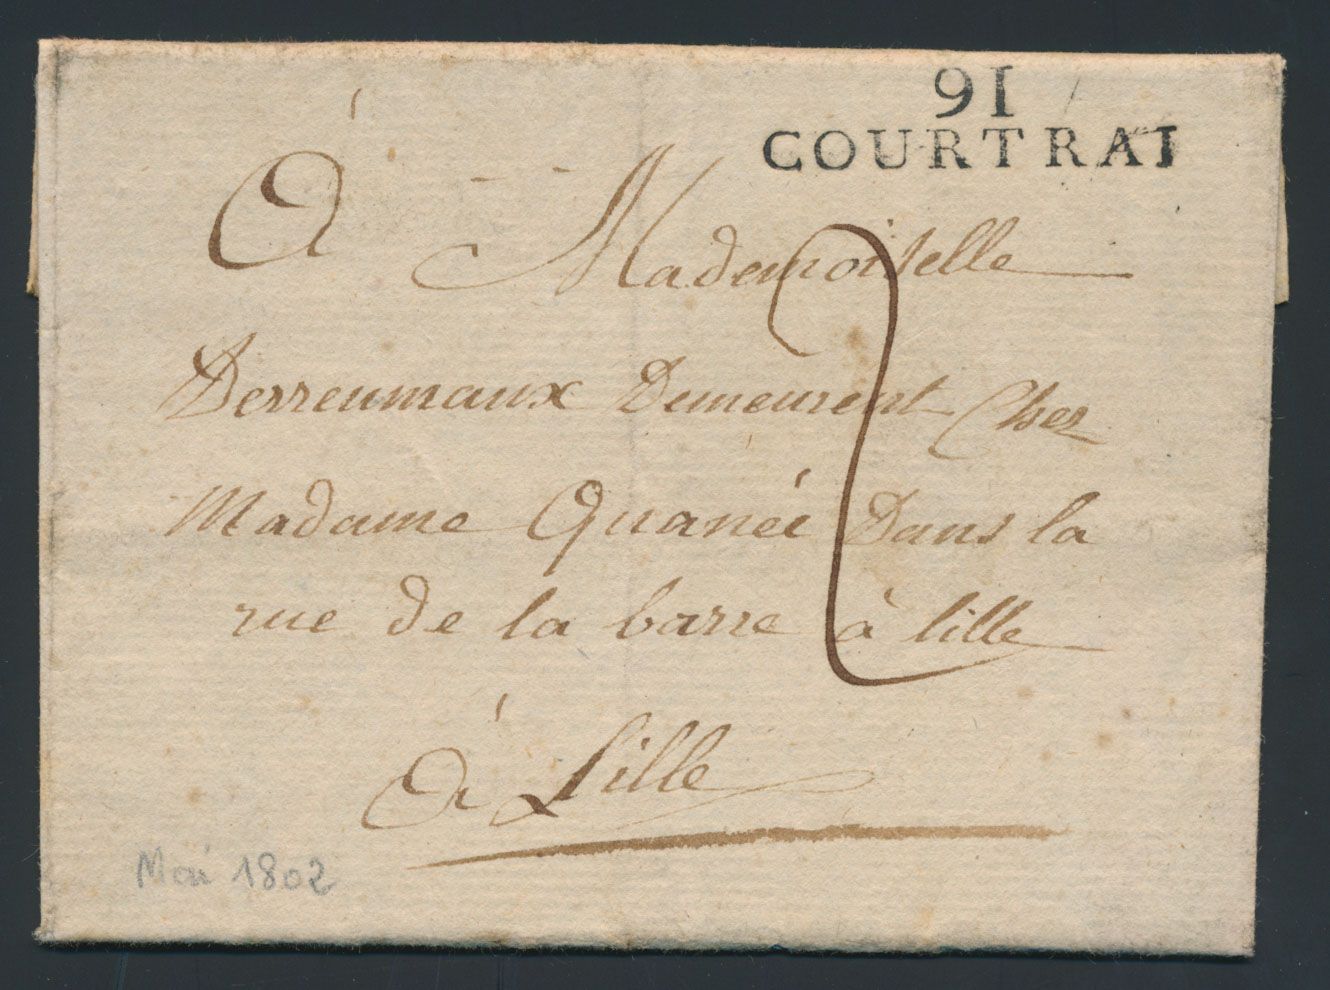 91
COURTRAI
À Mademoiselle
Derreumaux Demeurent Chez
Madame Quaneé Dans la
rue de la barre à lille
à Lille
2
Mai 1802